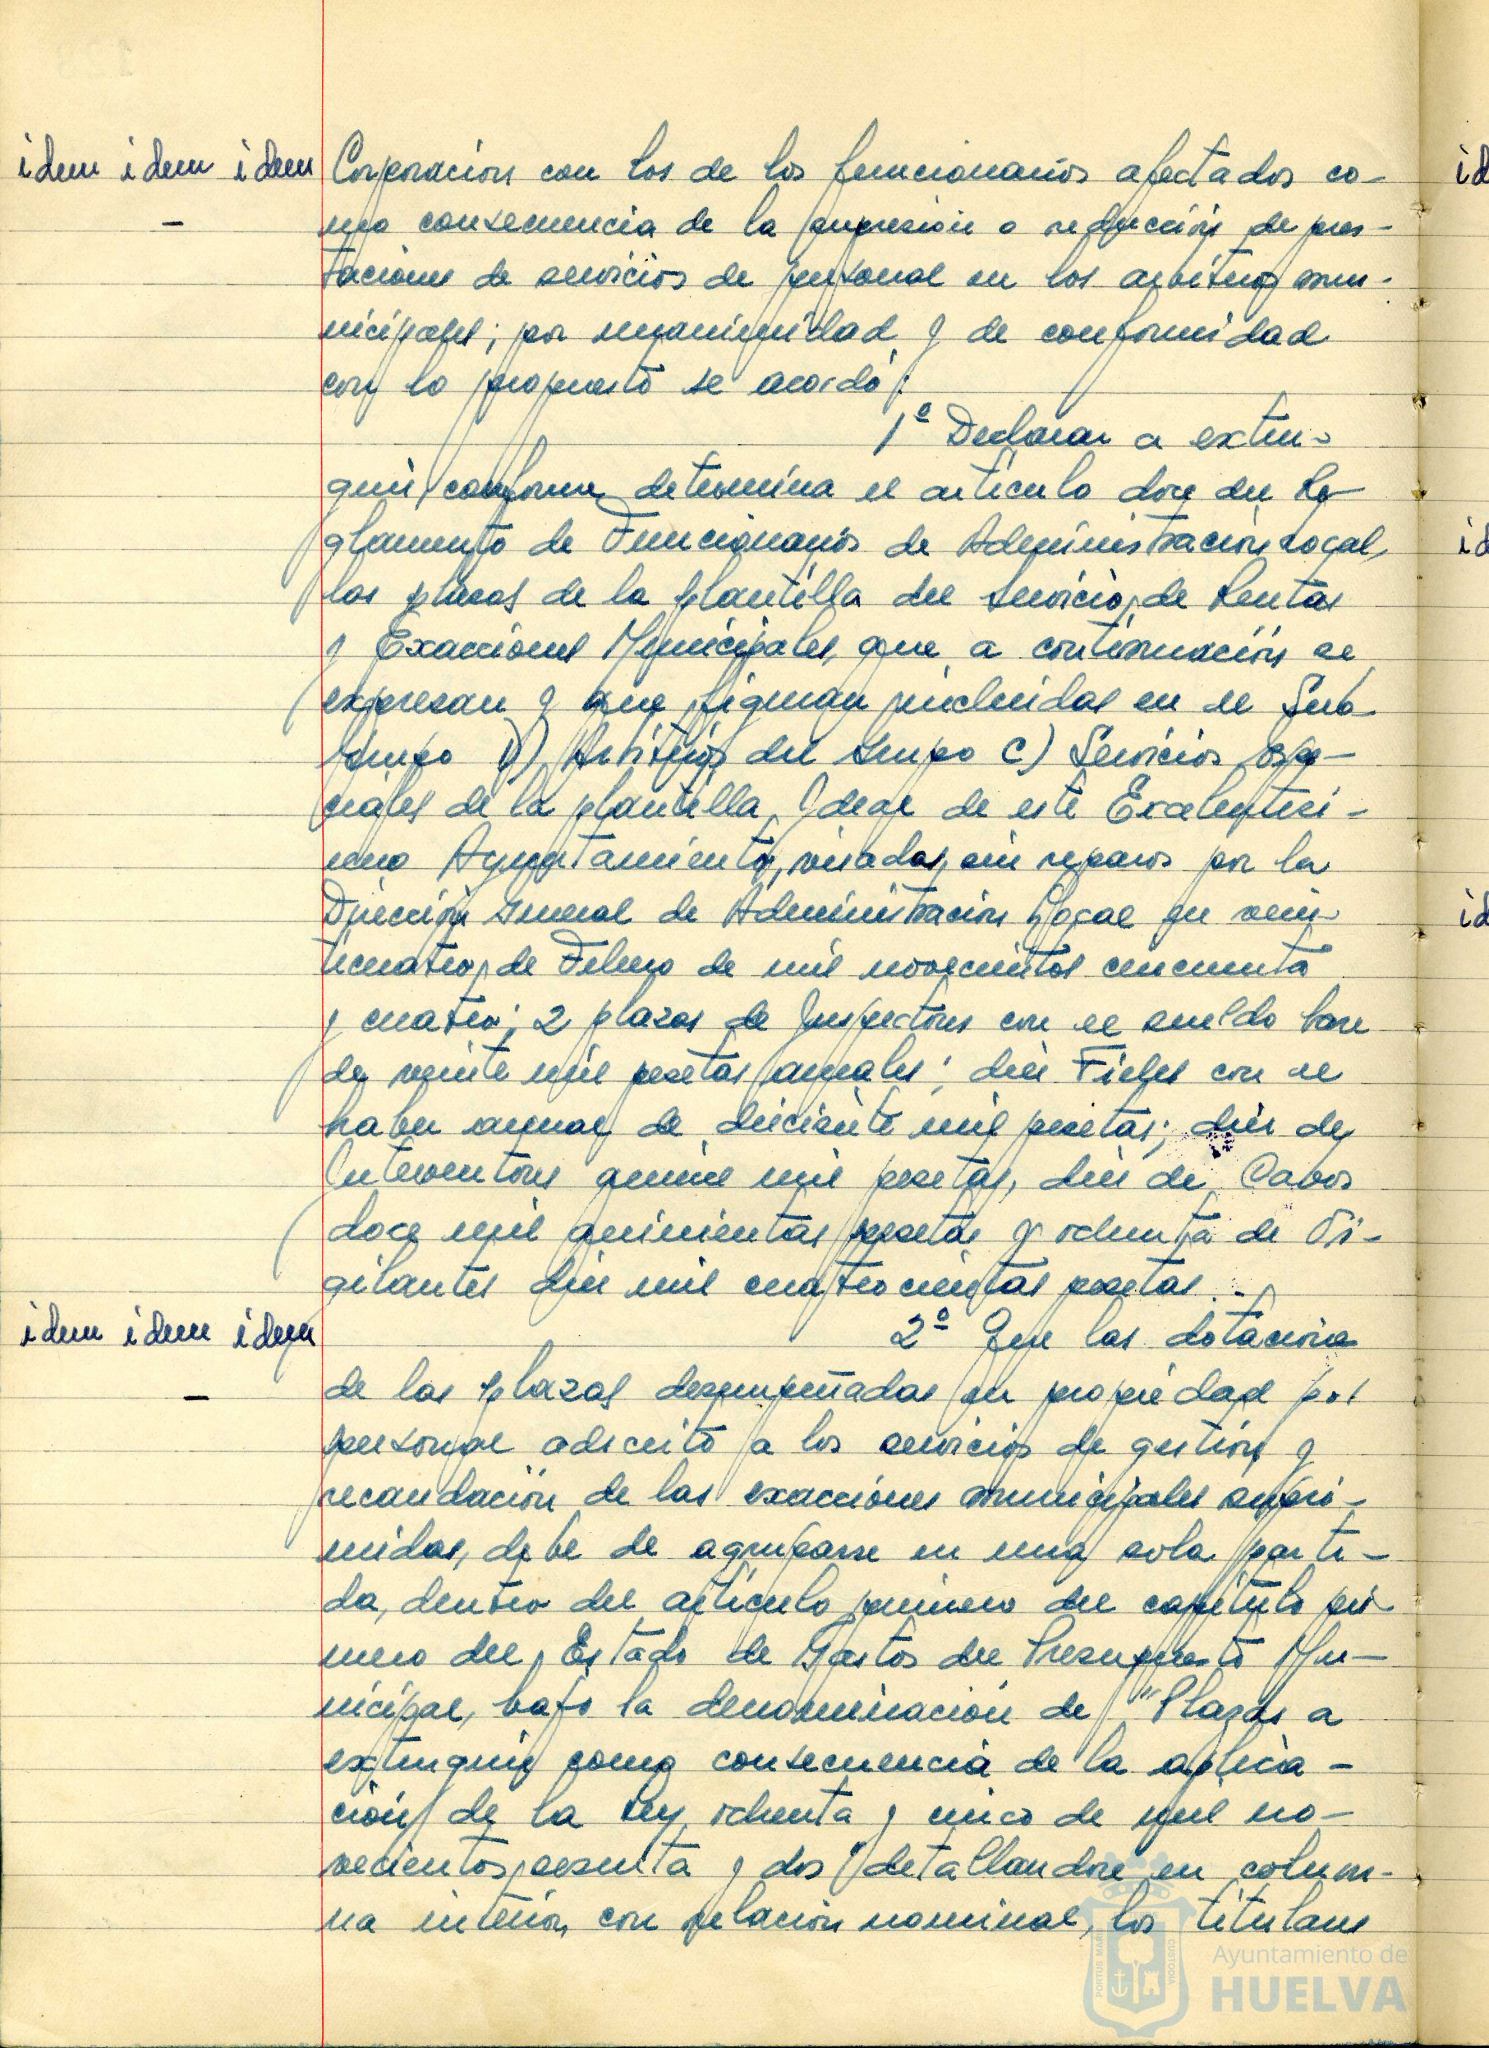 idem idem idem
Corporación con los de los funcionarios afectados co-
mo consecuencia de la supresión o reducción de pres-
taciones de servicios de personal en los arbitrios mu-
nicipales; por unanimidad y de conformidad
con lo propuesto se acordó:
1º Declarar a extin-
guir conforme determina el artículo doce del Re-
glamento de Funcionarios de Administración Local,
las plazas de la plantilla del servicio de Rentas
y Exacciones Municipales, que a continuación se
expresan y que figuran incluidas en el Sub-
grupo D) Arbitrios del Grupo C) Servicios espe-
ciales de la plantilla ideal de este Excelentísi-
mo Ayuntamiento, visadas sin reparos por la
Dirección General de Administración Local en vein-
ticuatro de Febrero de mil novecientos cincuenta
y cuatro; 2 plazas de Inspectores con el sueldo base
de veinte mil pesetas anuales; diez Fieles con el
haber anual de diecisiete mil pesetas; diez de
Interventores quince mil pesetas, diez de Cabos
doce mil quinientas pesetas y ochenta de Vi-
gilantes diez mil cuatrocientas pesetas.-
idem idem idem
2º Que las dotaciones
de las plazas desempeñadas en propiedad por
personal adscrito a los servicios de gestión y
recaudación de las exacciones municipales supri-
midas, debe de agruparse en una sola parti-
da, dentro del artículo primero del capítulo pri-
mero del Estado de Gastos del Presupuesto Mu-
nicipal, bajo la denominación de "Plazas a
extinguir como consecuencia de la aplica-
ción de la Ley ochenta y cinco de mil no-
vecientos sesenta y dos" detallandose en colum-
na interior, con relación nominal, los titulares
id
id
id
PORTUS MARIS
CUSTODIA
Ayuntamiento de
HUELVA